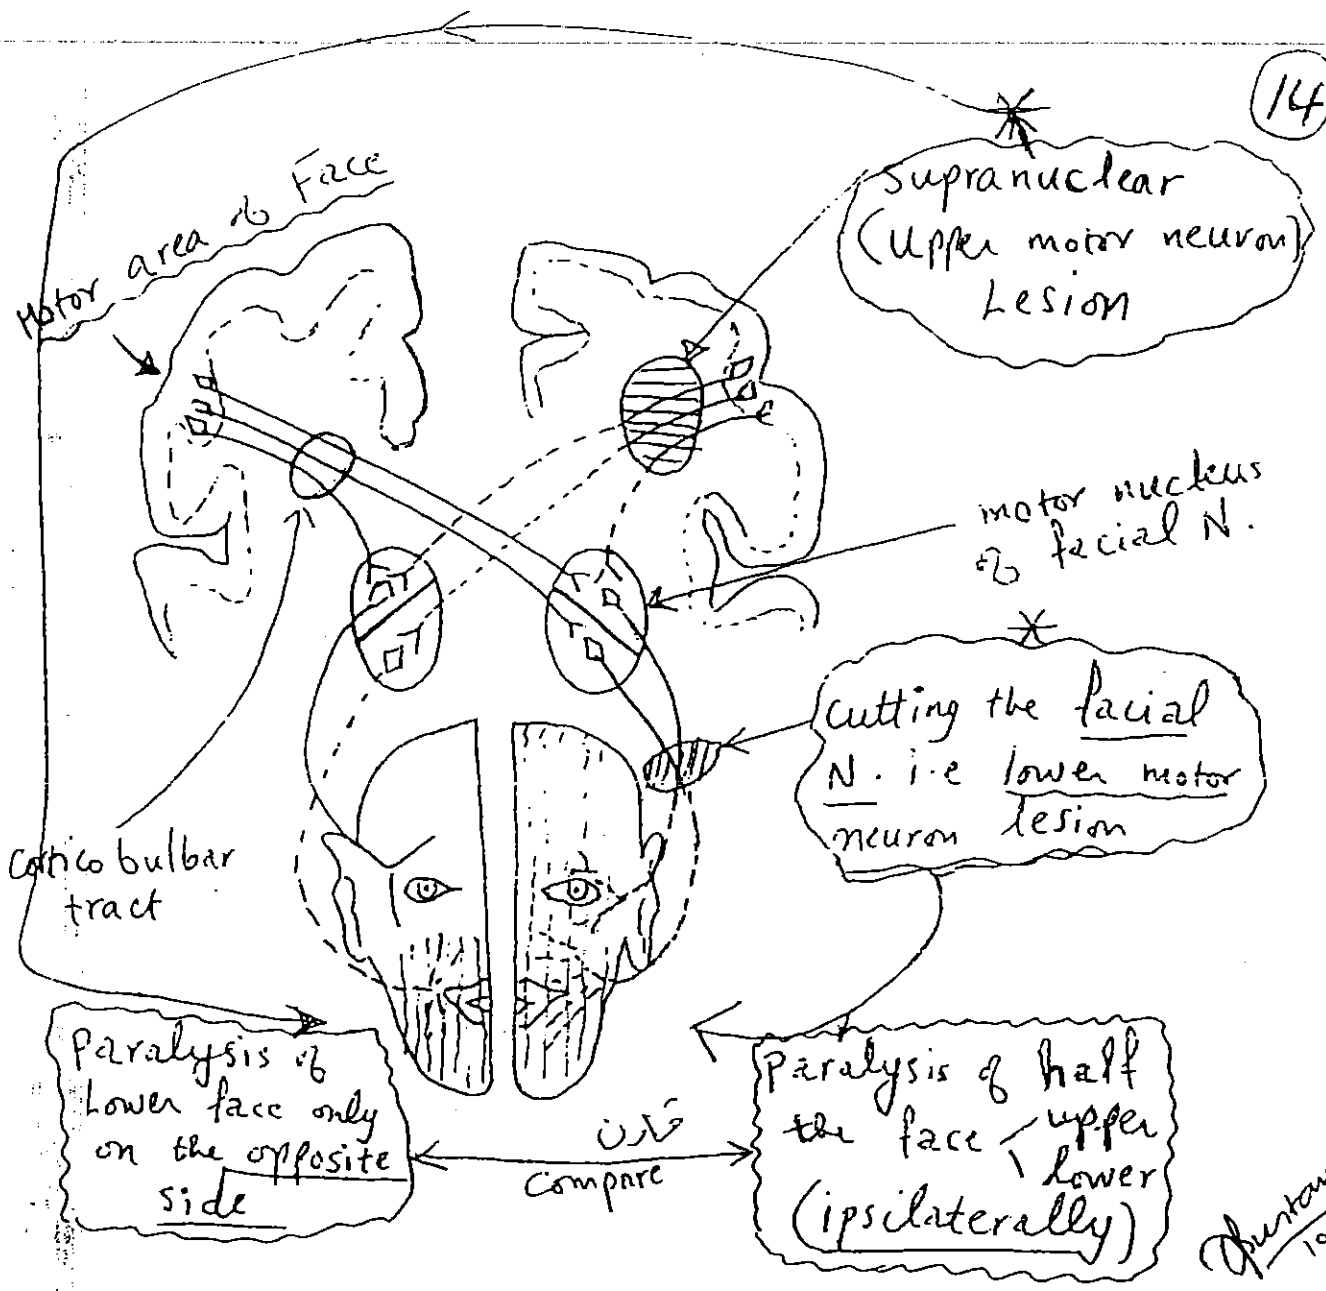 14
Supranuclear
(Upper motor neuron)
Lesion
Motor area of Face
motor nucleus
of facial N.
cutting the facial
N. i.e lower motor
neuron lesion
Cortico bulbar
tract
Paralysis of
Lower face only
on the opposite
side
قارن
compare
Paralysis of half
the face upper
lower
(ipsilaterally)